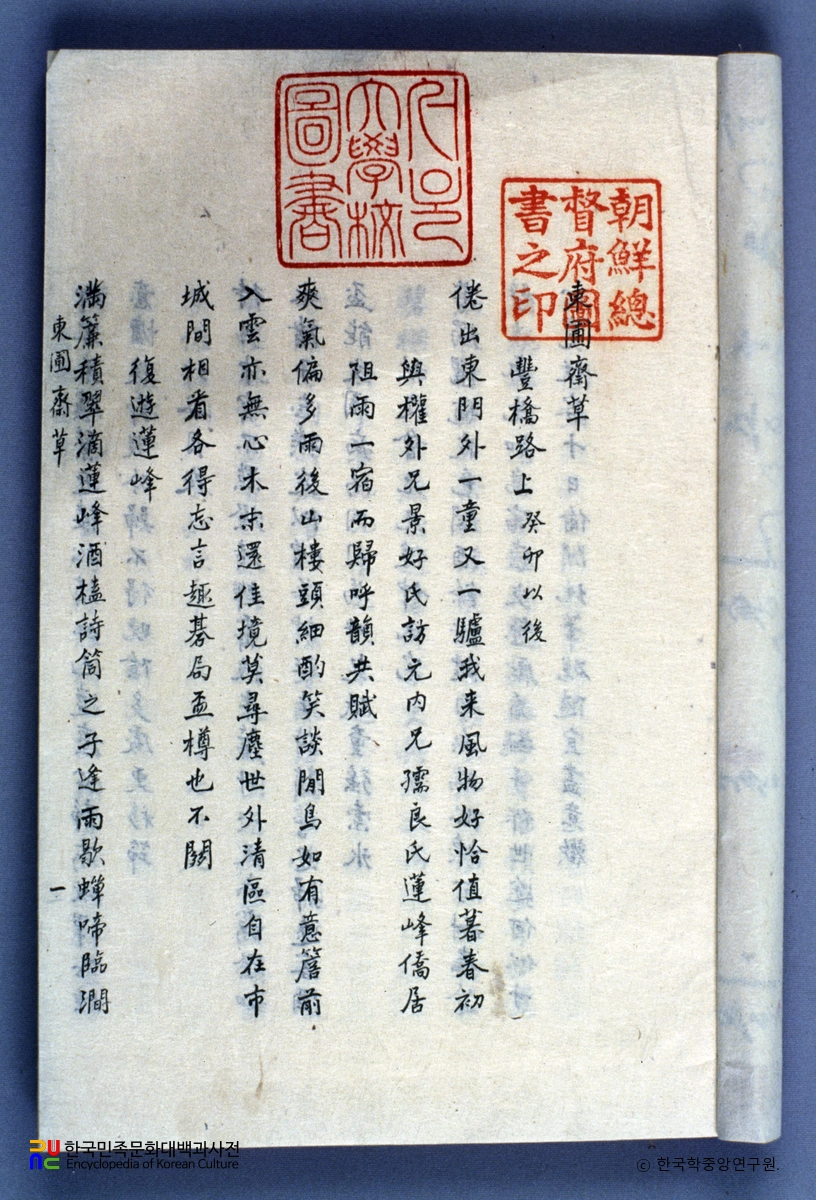 朝鮮總
督府圖
書之印
서울
大學校
圖書
東圃齋草
豐橋路上 癸卯以後
倦出東門外一童又一驢我来風物好恰值暮春初
與權外兄景好氏訪元内兄孺良氏蓮峰僑居
阻雨一宿而歸呼韻共賦
爽氣偏多雨後山樓頭細酌笑談閒鳥如有意簷前
入雲亦無心木末還佳境莫尋塵世外清區自在市
城間相看各得忘言趣碁局盃樽也不關
復遊蓮峰
満簾積翠滴蓮峰酒榼詩筒之子逢雨歇蟬啼臨澗
東圃齋草 一
한국민족문화대백과사전
Encyclopedia of Korean Culture
© 한국학중앙연구원.